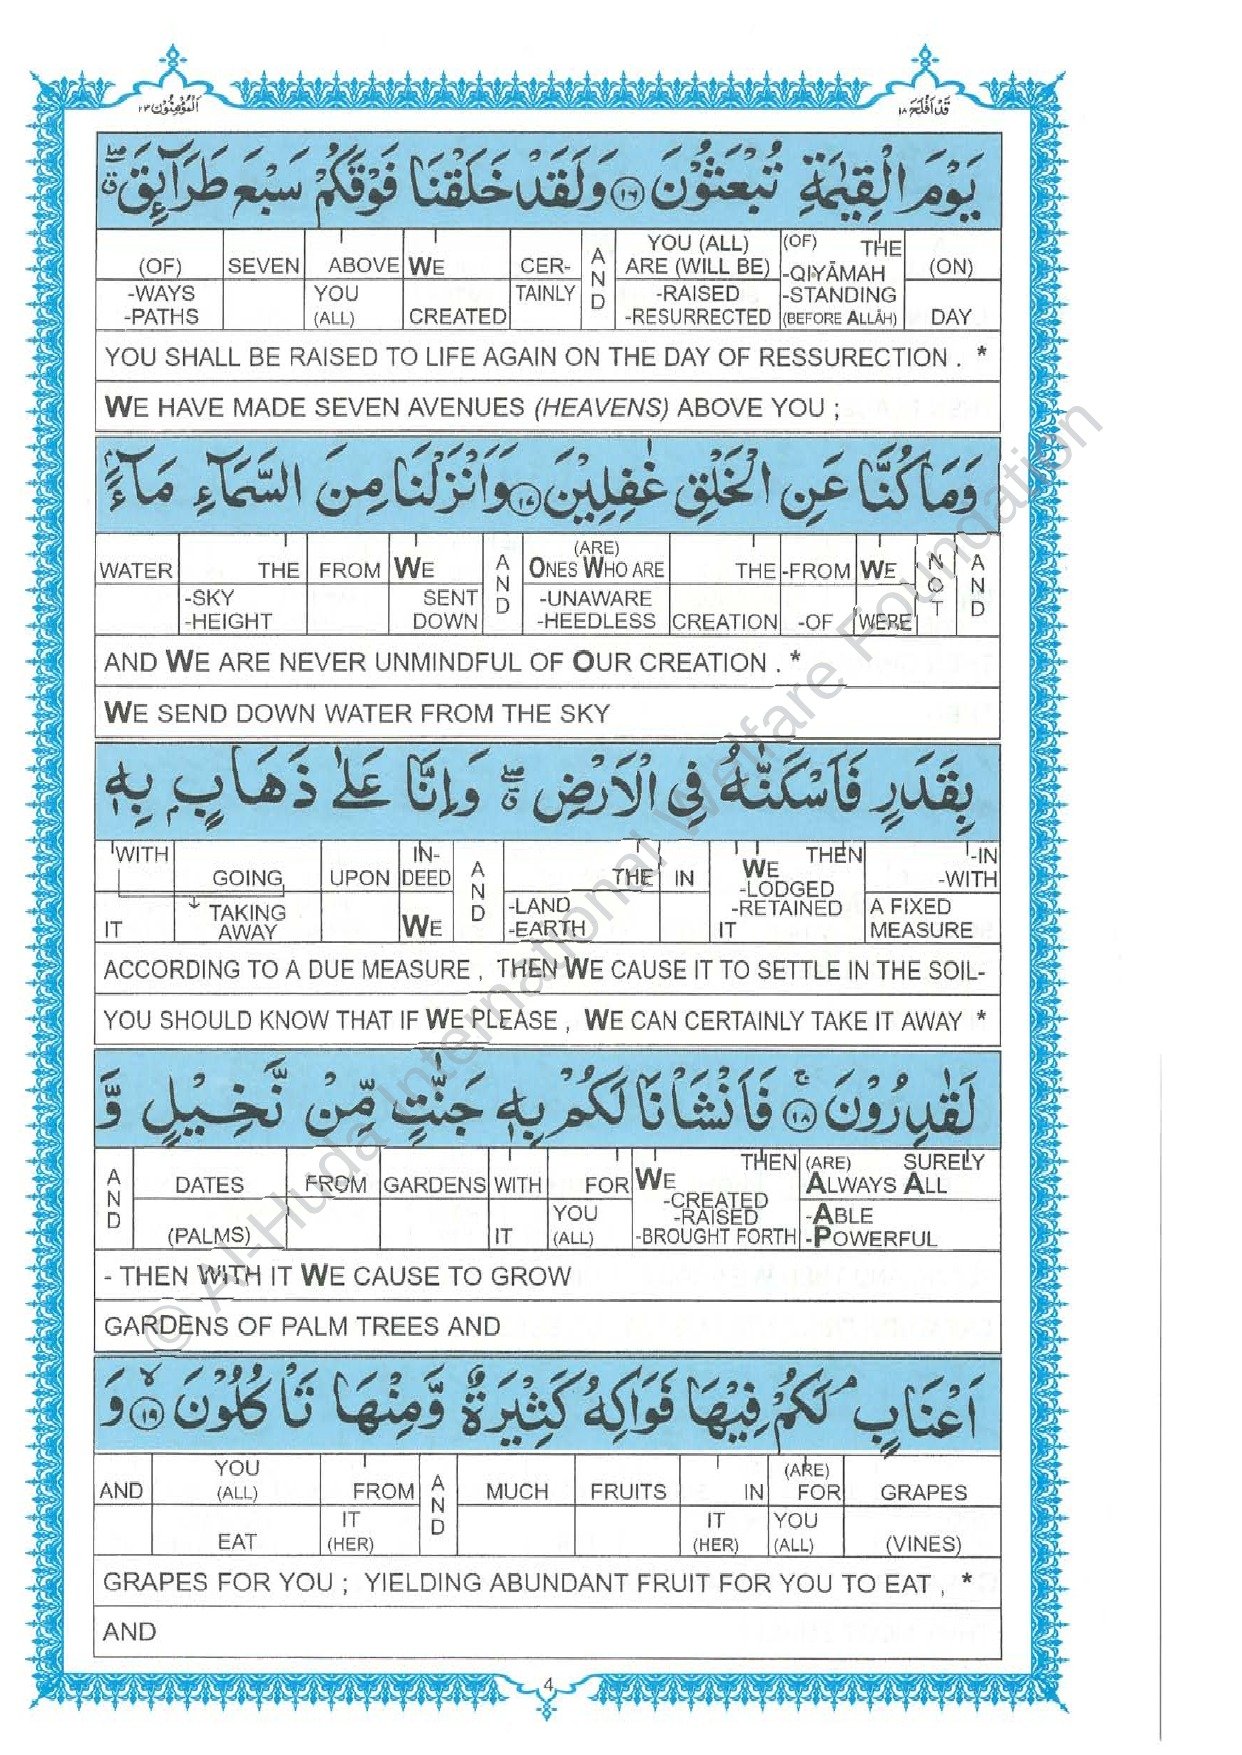 المؤمنون ٢٣
قد افلح ١٨
يَوْمَ الْقِيٰمَةِ تُبْعَثُوْنَ ١٦ وَلَقَدْ خَلَقْنَا فَوْقَكُمْ سَبْعَ طَرَآئِقَ ۖق
(OF) SEVEN ABOVE WE CER- AND YOU (ALL) ARE (WILL BE) (OF) THE -QIYĀMAH (ON)
-WAYS -PATHS YOU (ALL) CREATED TAINLY -RAISED -RESURRECTED -STANDING (BEFORE ALLĀH) DAY
YOU SHALL BE RAISED TO LIFE AGAIN ON THE DAY OF RESSURECTION . *
WE HAVE MADE SEVEN AVENUES (HEAVENS) ABOVE YOU ;
وَمَا كُنَّا عَنِ الْخَلْقِ غٰفِلِيْنَ ١٧ وَاَنْزَلْنَا مِنَ السَّمَآءِ مَآءًۢ
WATER THE FROM WE AND (ARE) ONES WHO ARE THE -FROM WE NOT AND
-SKY -HEIGHT SENT DOWN -UNAWARE -HEEDLESS CREATION -OF WERE
AND WE ARE NEVER UNMINDFUL OF OUR CREATION . *
WE SEND DOWN WATER FROM THE SKY
بِقَدَرٍ فَاَسْكَنّٰهُ فِي الْاَرْضِ ۖق وَاِنَّا عَلٰى ذَهَابٍۭ بِهٖ
WITH GOING UPON IN-DEED AND THE IN THEN WE -LODGED -IN -WITH
IT TAKING AWAY WE -LAND -EARTH -RETAINED IT A FIXED MEASURE
ACCORDING TO A DUE MEASURE , THEN WE CAUSE IT TO SETTLE IN THE SOIL-
YOU SHOULD KNOW THAT IF WE PLEASE , WE CAN CERTAINLY TAKE IT AWAY *
لَقٰدِرُوْنَ ۚ ١٨ فَاَنْشَاْنَا لَكُمْ بِهٖ جَنّٰتٍ مِّنْ نَّخِيْلٍ وَّ
AND DATES FROM GARDENS WITH FOR THEN WE (ARE) SURELY ALWAYS ALL
(PALMS) IT YOU (ALL) -CREATED -RAISED -BROUGHT FORTH -ABLE -POWERFUL
- THEN WITH IT WE CAUSE TO GROW
GARDENS OF PALM TREES AND
اَعْنَابٍ ۘ لَكُمْ فِيْهَا فَوَاكِهُ كَثِيْرَةٌ وَّمِنْهَا تَاْكُلُوْنَ ۙ ١٩ وَ
AND YOU (ALL) FROM AND MUCH FRUITS IN (ARE) FOR GRAPES
EAT IT (HER) IT (HER) YOU (ALL) (VINES)
GRAPES FOR YOU ; YIELDING ABUNDANT FRUIT FOR YOU TO EAT , *
AND
4
© Al-Huda International Welfare Foundation